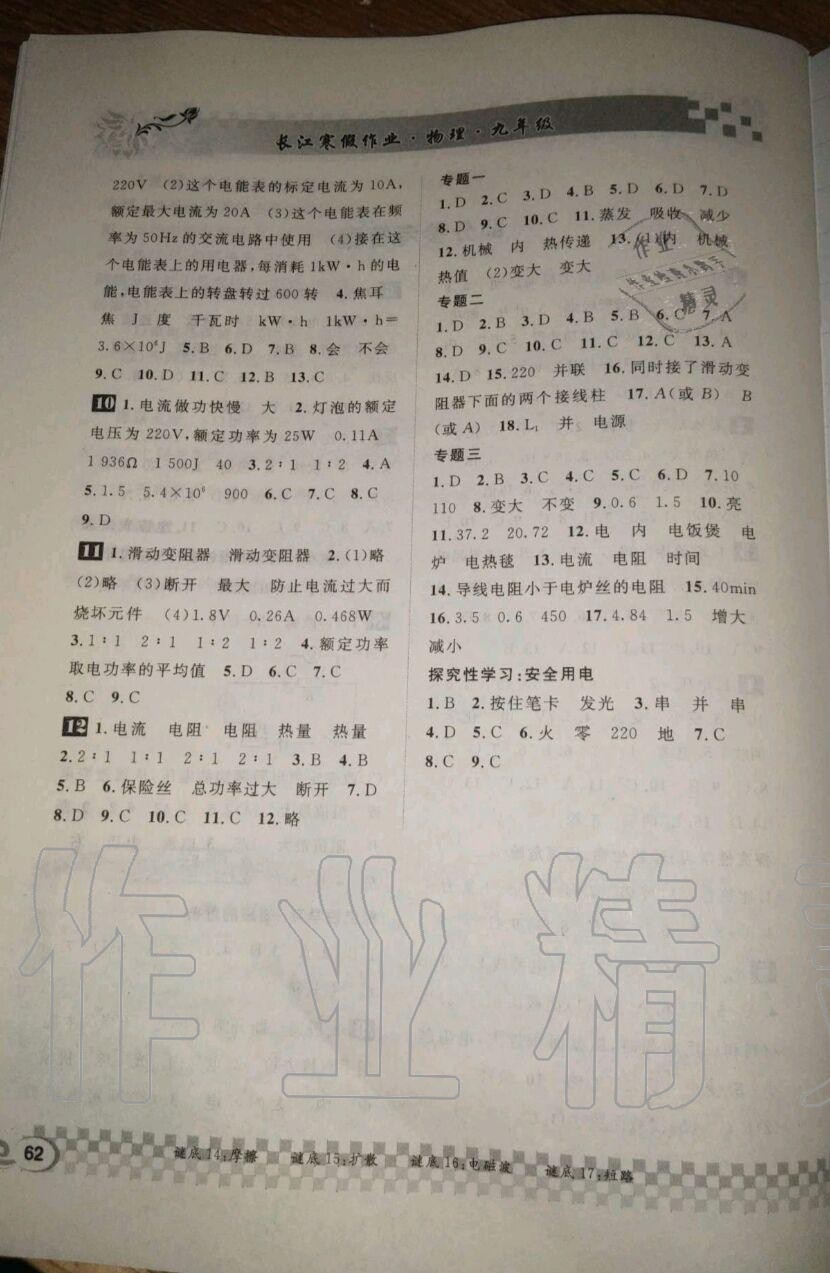 长江寒假作业·物理·九年级
220V (2)这个电能表的标定电流为10A,
额定最大电流为20A (3)这个电能表在频
率为50Hz的交流电路中使用 (4)接在这
个电能表上的用电器,每消耗1kW·h的电
能,电能表上的转盘转过600转 4.焦耳
焦 J 度 千瓦时 kW·h 1kW·h=
3.6×10⁶J 5.B 6.D 7.B 8.会 不会
9.C 10.D 11.C 12.B 13.C
10 1.电流做功快慢 大 2.灯泡的额定
电压为220V,额定功率为25W 0.11A
1 936Ω 1 500J 40 3.2∶1 1∶2 4.A
5.1.5 5.4×10⁶ 900 6.C 7.C 8.C
9.D
11 1.滑动变阻器 滑动变阻器 2.(1)略
(2)略 (3)断开 最大 防止电流过大而
烧坏元件 (4)1.8V 0.26A 0.468W
3.1∶1 2∶1 1∶2 1∶2 4.额定功率
取电功率的平均值 5.D 6.C 7.C
8.C 9.C
12 1.电流 电阻 电阻 热量 热量
2.2∶1 1∶1 2∶1 2∶1 3.B 4.B
5.B 6.保险丝 总功率过大 断开 7.D
8.D 9.C 10.C 11.C 12.略
专题一
1.D 2.C 3.D 4.B 5.D 6.D 7.D
8.D 9.C 10.C 11.蒸发 吸收 减少
12.机械 内 热传递 13.(1)内 机械
热值 (2)变大 变大
专题二
1.D 2.B 3.D 4.D 5.B 6.C 7.A
8.D 9.C 10.D 11.C 12.C 13.A
14.D 15.220 并联 16.同时接了滑动变
阻器下面的两个接线柱 17.A(或B) B
(或A) 18.L₁ 并 电源
专题三
1.D 2.B 3.C 4.C 5.C 6.D 7.10
110 8.变大 不变 9.0.6 1.5 10.亮
11.37.2 20.72 12.电 内 电饭煲 电
炉 电热毯 13.电流 电阻 时间
14.导线电阻小于电炉丝的电阻 15.40min
16.3.5 0.6 450 17.4.84 1.5 增大
减小
探究性学习:安全用电
1.B 2.按住笔卡 发光 3.串 并 串
4.D 5.C 6.火 零 220 地 7.C
8.C 9.C
作业
精灵
作业精灵
62
谜底14:摩擦 谜底15:扩散 谜底16:电磁波 谜底17:短路